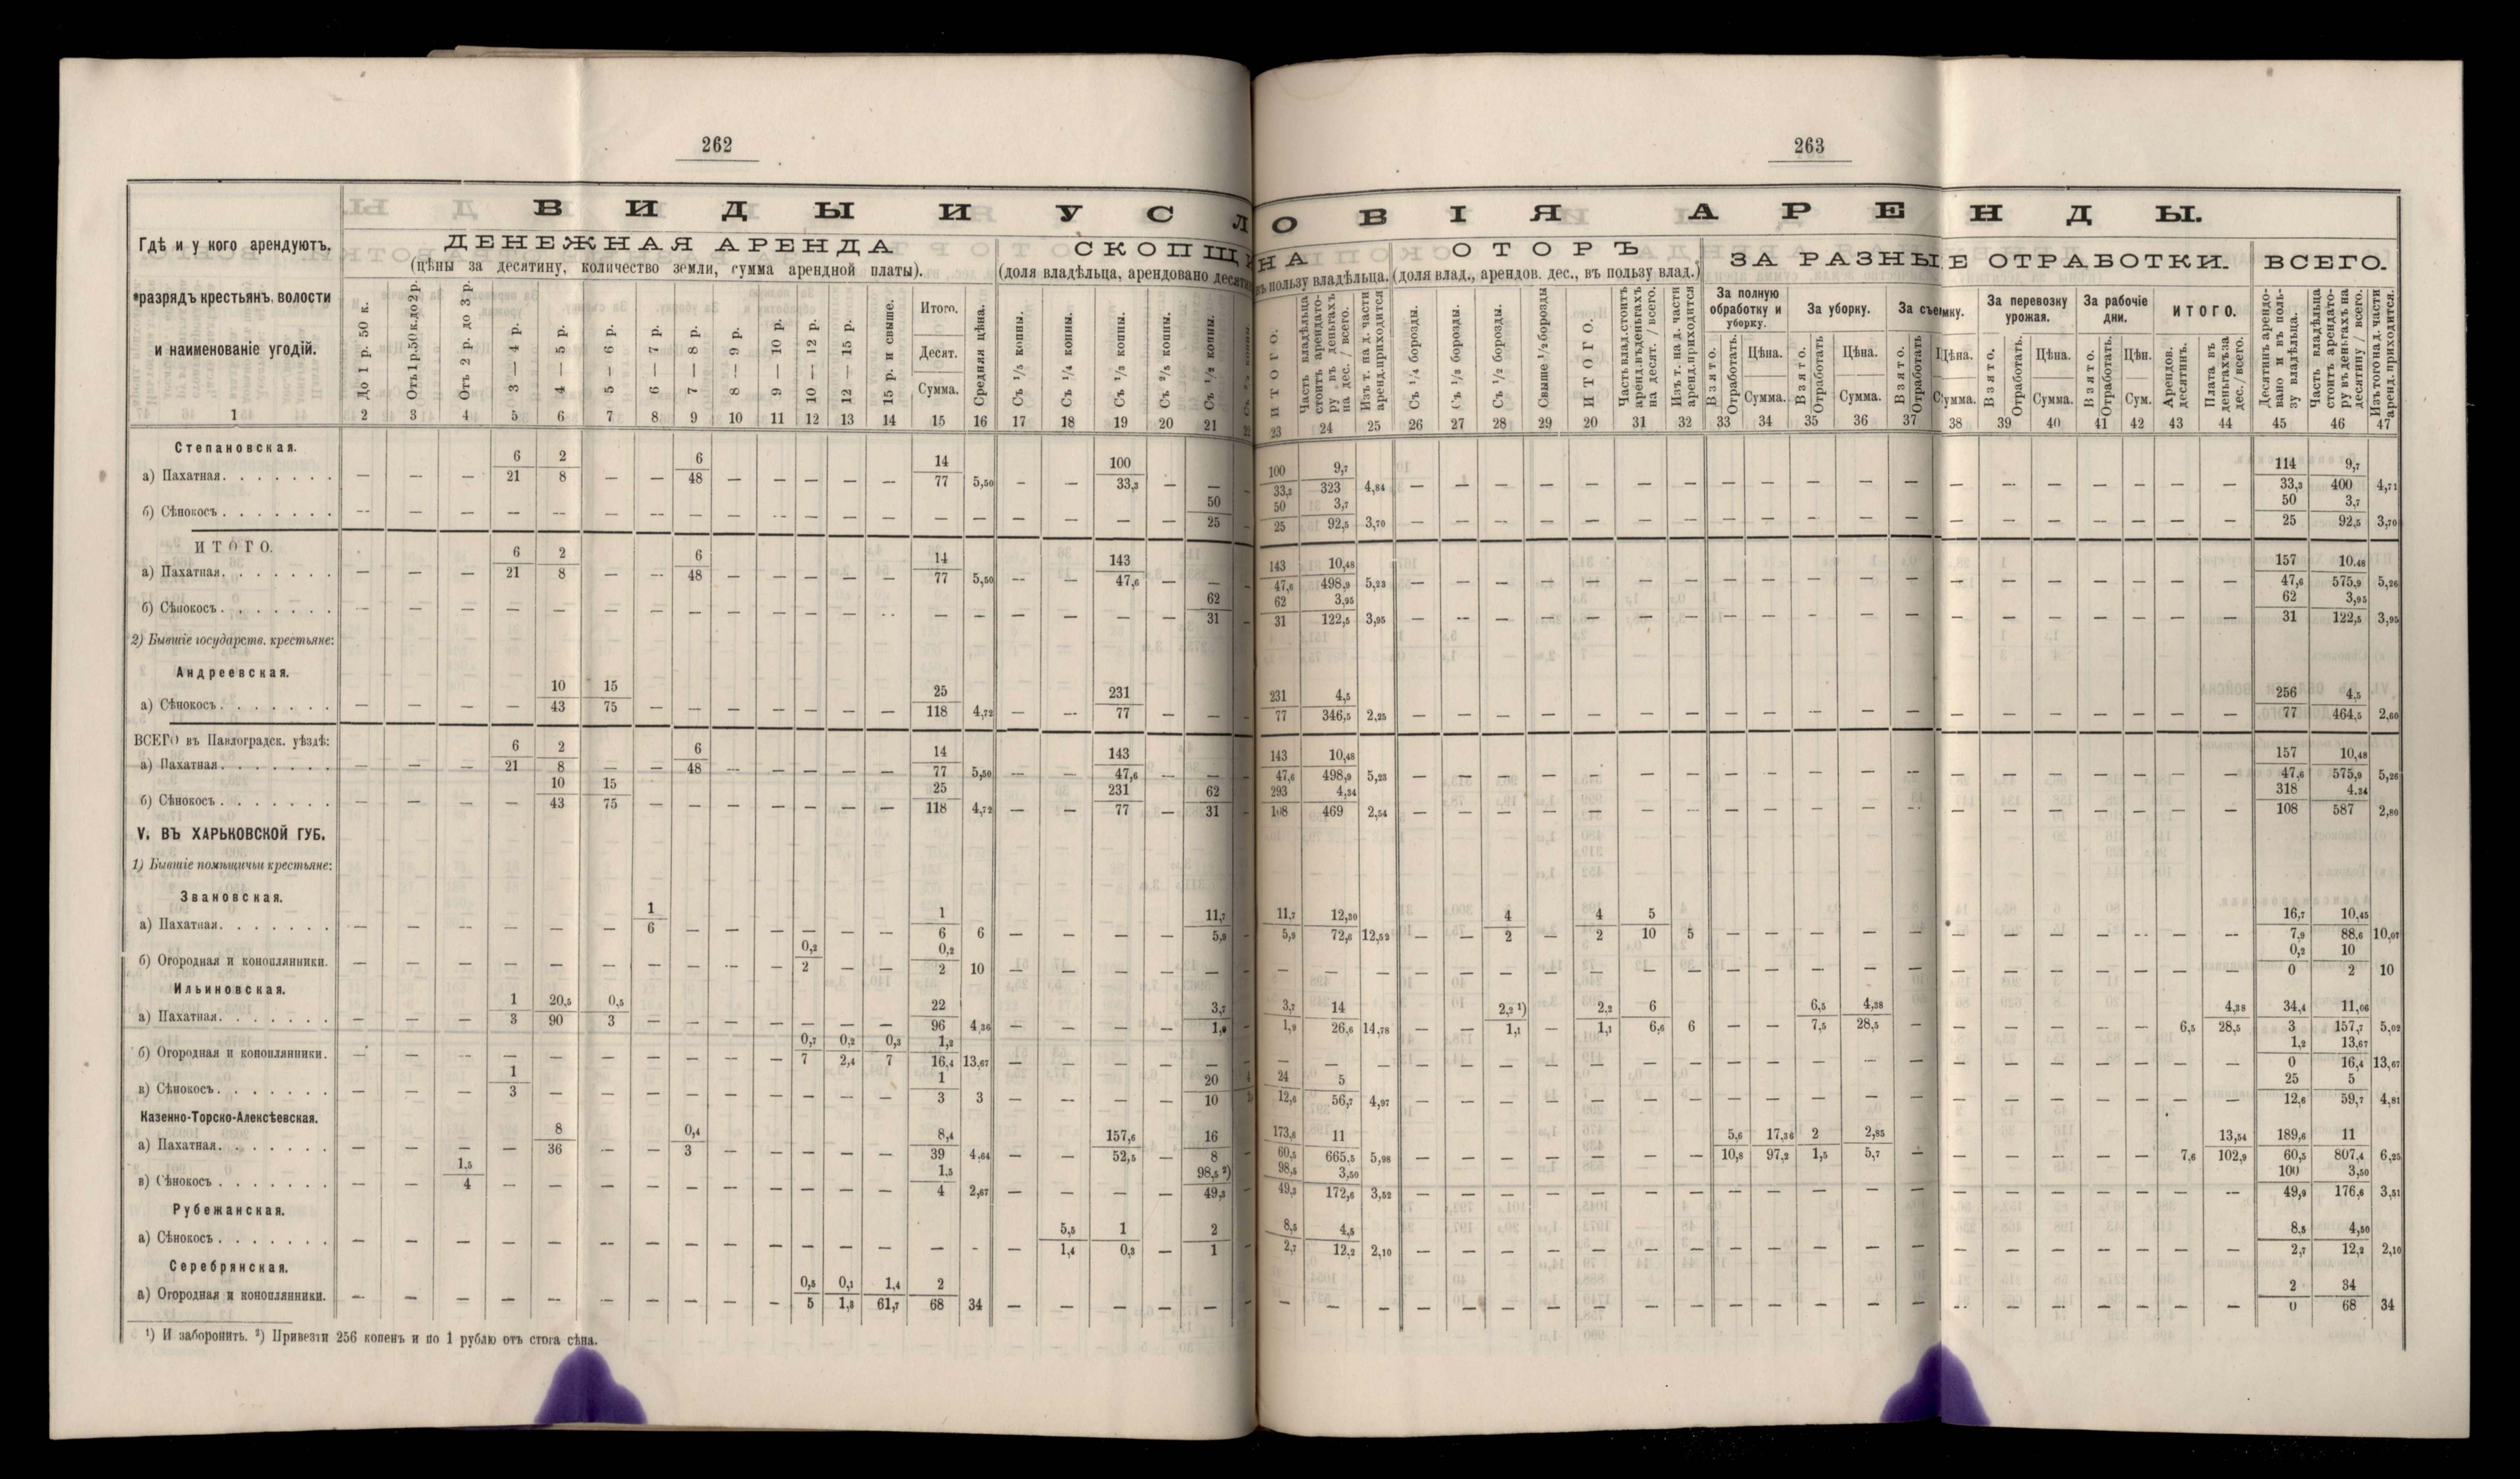 262
263
ВИДЫ И УСЛОВІЯ АРЕНДЫ.
Гдѣ и у кого арендуютъ,
разрядъ крестьянъ, волости
и наименованіе угодій.
ДЕНЕЖНАЯ АРЕНДА
(цѣны за десятину, количество земли, сумма арендной платы).
СКОПЩИНА
(доля владѣльца, арендовано десятин
въ пользу владѣльца.
ОТОРЪ
(доля влад., арендов. дес., въ пользу влад.)
ЗА РАЗНЫЕ ОТРАБОТКИ.
ВСЕГО.
До 1 р. 50 к.
Отъ 1 р. 50 к. до 2 р.
Отъ 2 р. до 3 р.
3 — 4 р.
4 — 5 р.
5 — 6 р.
6 — 7 р.
7 — 8 р.
8 — 9 р.
9 — 10 р.
10 — 12 р.
12 — 15 р.
15 р. и свыше.
Итого.
Десят.
Сумма.
Средняя цѣна.
Съ 1/5 копны.
Съ 1/4 копны.
Съ 1/3 копны.
Съ 2/5 копны.
Съ 1/2 копны.
ИТОГО.
Часть владѣльца стоитъ арендатору въ деньгахъ на дес. / всего.
Изъ т. на д. части аренд. приходится
Съ 1/4 борозды.
Съ 1/3 борозды.
Съ 1/2 борозды.
Свыше 1/2 борозды
ИТОГО.
Часть влад. стоитъ аренд. въ деньгахъ на десят. / всего.
Изъ т. на д. части аренд. приходится
За полную обработку и уборку.
За уборку.
За съемку.
За перевозку урожая.
За рабочіе дни.
ИТОГО.
Взято. Отработать.
Цѣна. Сумма.
Взято. Отработать
Цѣна. Сумма.
Взято. Отработать
Цѣна. Сумма.
Взято. Отработать.
Цѣна. Сумма.
Взято. Отработать.
Цѣн. Сум.
Арендов. десятинъ.
Плата въ деньгахъ за дес. / всего.
Десятинъ арендовано и въ пользу владѣльца.
Часть владѣльца стоитъ арендатору въ деньгахъ на десятину / всего.
Изъ того на д. части аренд. приходится.
1 2 3 4 5 6 7 8 9 10 11 12 13 14 15 16 17 18 19 20 21 22 23 24 25 26 27 28 29 20 31 32 33 34 35 36 37 38 39 40 41 42 43 44 45 46 47
Степановская.
6 2 6 14 100 100 9,7 114 9,7
а) Пахатная. — — — 21 8 — — 48 — — — — — 77 5,50 — — 33,3 — — 33,3 323 4,84 — — — — — — — — — — — — — — — — — — — 33,3 400 4,71
50 50 3,7 50 3,7
б) Сѣнокосъ. — — — — — — — — — — — — — — — — — — — 25 25 92,5 3,70 — — — — — — — — — — — — — — — — — — — 25 92,5 3,70
ИТОГО.
6 2 6 14 143 143 10,48 157 10,48
а) Пахатная. — — — 21 8 — — 48 — — — — — 77 5,50 — — 47,6 — — 47,6 498,9 5,23 — — — — — — — — — — — — — — — — — — — 47,6 575,9 5,26
62 62 3,95 62 3,95
б) Сѣнокосъ. — — — — — — — — — — — — — — — — — — — 31 31 122,5 3,95 — — — — — — — — — — — — — — — — — — — 31 122,5 3,95
2) Бывшіе государств. крестьяне:
Андреевская.
10 15 25 231 231 4,5 256 4,5
а) Сѣнокосъ. — — — — 43 75 — — — — — — — 118 4,72 — — 77 — — 77 346,5 2,25 — — — — — — — — — — — — — — — — — — — 77 464,5 2,60
ВСЕГО въ Павлоградск. уѣздѣ:
6 2 6 14 143 143 10,48 157 10,48
а) Пахатная. — — — 21 8 — — 48 — — — — — 77 5,50 — — 47,6 — — 47,6 498,9 5,23 — — — — — — — — — — — — — — — — — — — 47,6 575,9 5,26
10 15 25 231 62 293 4,34 318 4.34
б) Сѣнокосъ. — — — — 43 75 — — — — — — — 118 4,72 — — 77 — 31 108 469 2,54 — — — — — — — — — — — — — — — — — — — 108 587 2,80
V. ВЪ ХАРЬКОВСКОЙ ГУБ.
1) Бывшіе помѣщичьи крестьяне:
Звановская.
1 1 11,7 11,7 12,30 4 4 5 16,7 10,45
а) Пахатная. — — — — — — 6 — — — — — — 6 6 — — — — 5,9 5,9 72,6 12,52 — — 2 — 2 10 5 — — — — — — — — — — — — 7,9 88,6 10,07
0,2 0,2 0,2 10
б) Огородная и коноплянники. — — — — — — — — — — 2 — — 2 10 — — — — — — — — — — — — — — — — — — — — — — — — — — — 0 2 10
Ильиновская.
1 20,5 0,5 22 3,7 3,7 14 2,2 1) 2,2 6 6,5 4,38 4,38 34,4 11,06
а) Пахатная. — — — 3 90 3 — — — — — — — 96 4,36 — — — — 1,9 1,9 26,6 14,78 — — 1,1 — 1,1 6,6 6 — — 7,5 28,5 — — — — — — 6,5 28,5 3 157,7 5,02
0,7 0,2 0,3 1,2 1,2 13,67
б) Огородная и коноплянники. — — — — — — — — — — 7 2,4 7 16,4 13,67 — — — — — — — — — — — — — — — — — — — — — — — — — — — 0 16,4 13,67
1 1 20 4 24 5 25 5
в) Сѣнокосъ. — — — 3 — — — — — — — — — 3 3 — — — — 10 12,6 56,7 4,97 — — — — — — — — — — — — — — — — — — — 12,6 59,7 4,81
Казенно-Торско-Алексѣевская.
8 0,4 8,4 157,6 16 173,6 11 5,6 17,36 2 2,85 13,54 189,6 11
а) Пахатная. — — — — 36 — — 3 — — — — — 39 4,64 — — 52,5 — 8 60,5 665,5 5,98 — — — — — — — 10,8 97,2 1,5 5,7 — — — — — — 7,6 102,9 60,5 807,4 6,25
1,5 1,5 98,5 2) 98,5 3,50 100 3,50
в) Сѣнокосъ. — — 4 — — — — — — — — — — 4 2,67 — — — — 49,3 49,3 172,6 3,52 — — — — — — — — — — — — — — — — — — — 49,9 176,6 3,51
Рубежанская.
5,5 1 2 8,5 4,5 8,5 4,50
а) Сѣнокосъ. — — — — — — — — — — — — — — - — 1,4 0,3 — 1 2,7 12,2 2,10 — — — — — — — — — — — — — — — — — — — 2,7 12,2 2,10
Серебрянская.
0,5 0,1 1,4 2 2 34
а) Огородная и коноплянники. — — — — — — — — — — 5 1,3 61,7 68 34 — — — — — — — — — — — — — — — — — — — — — — — — — — — 0 68 34
1) И заборонить. 2) Привезти 256 копенъ и по 1 рублю отъ стога сѣна.